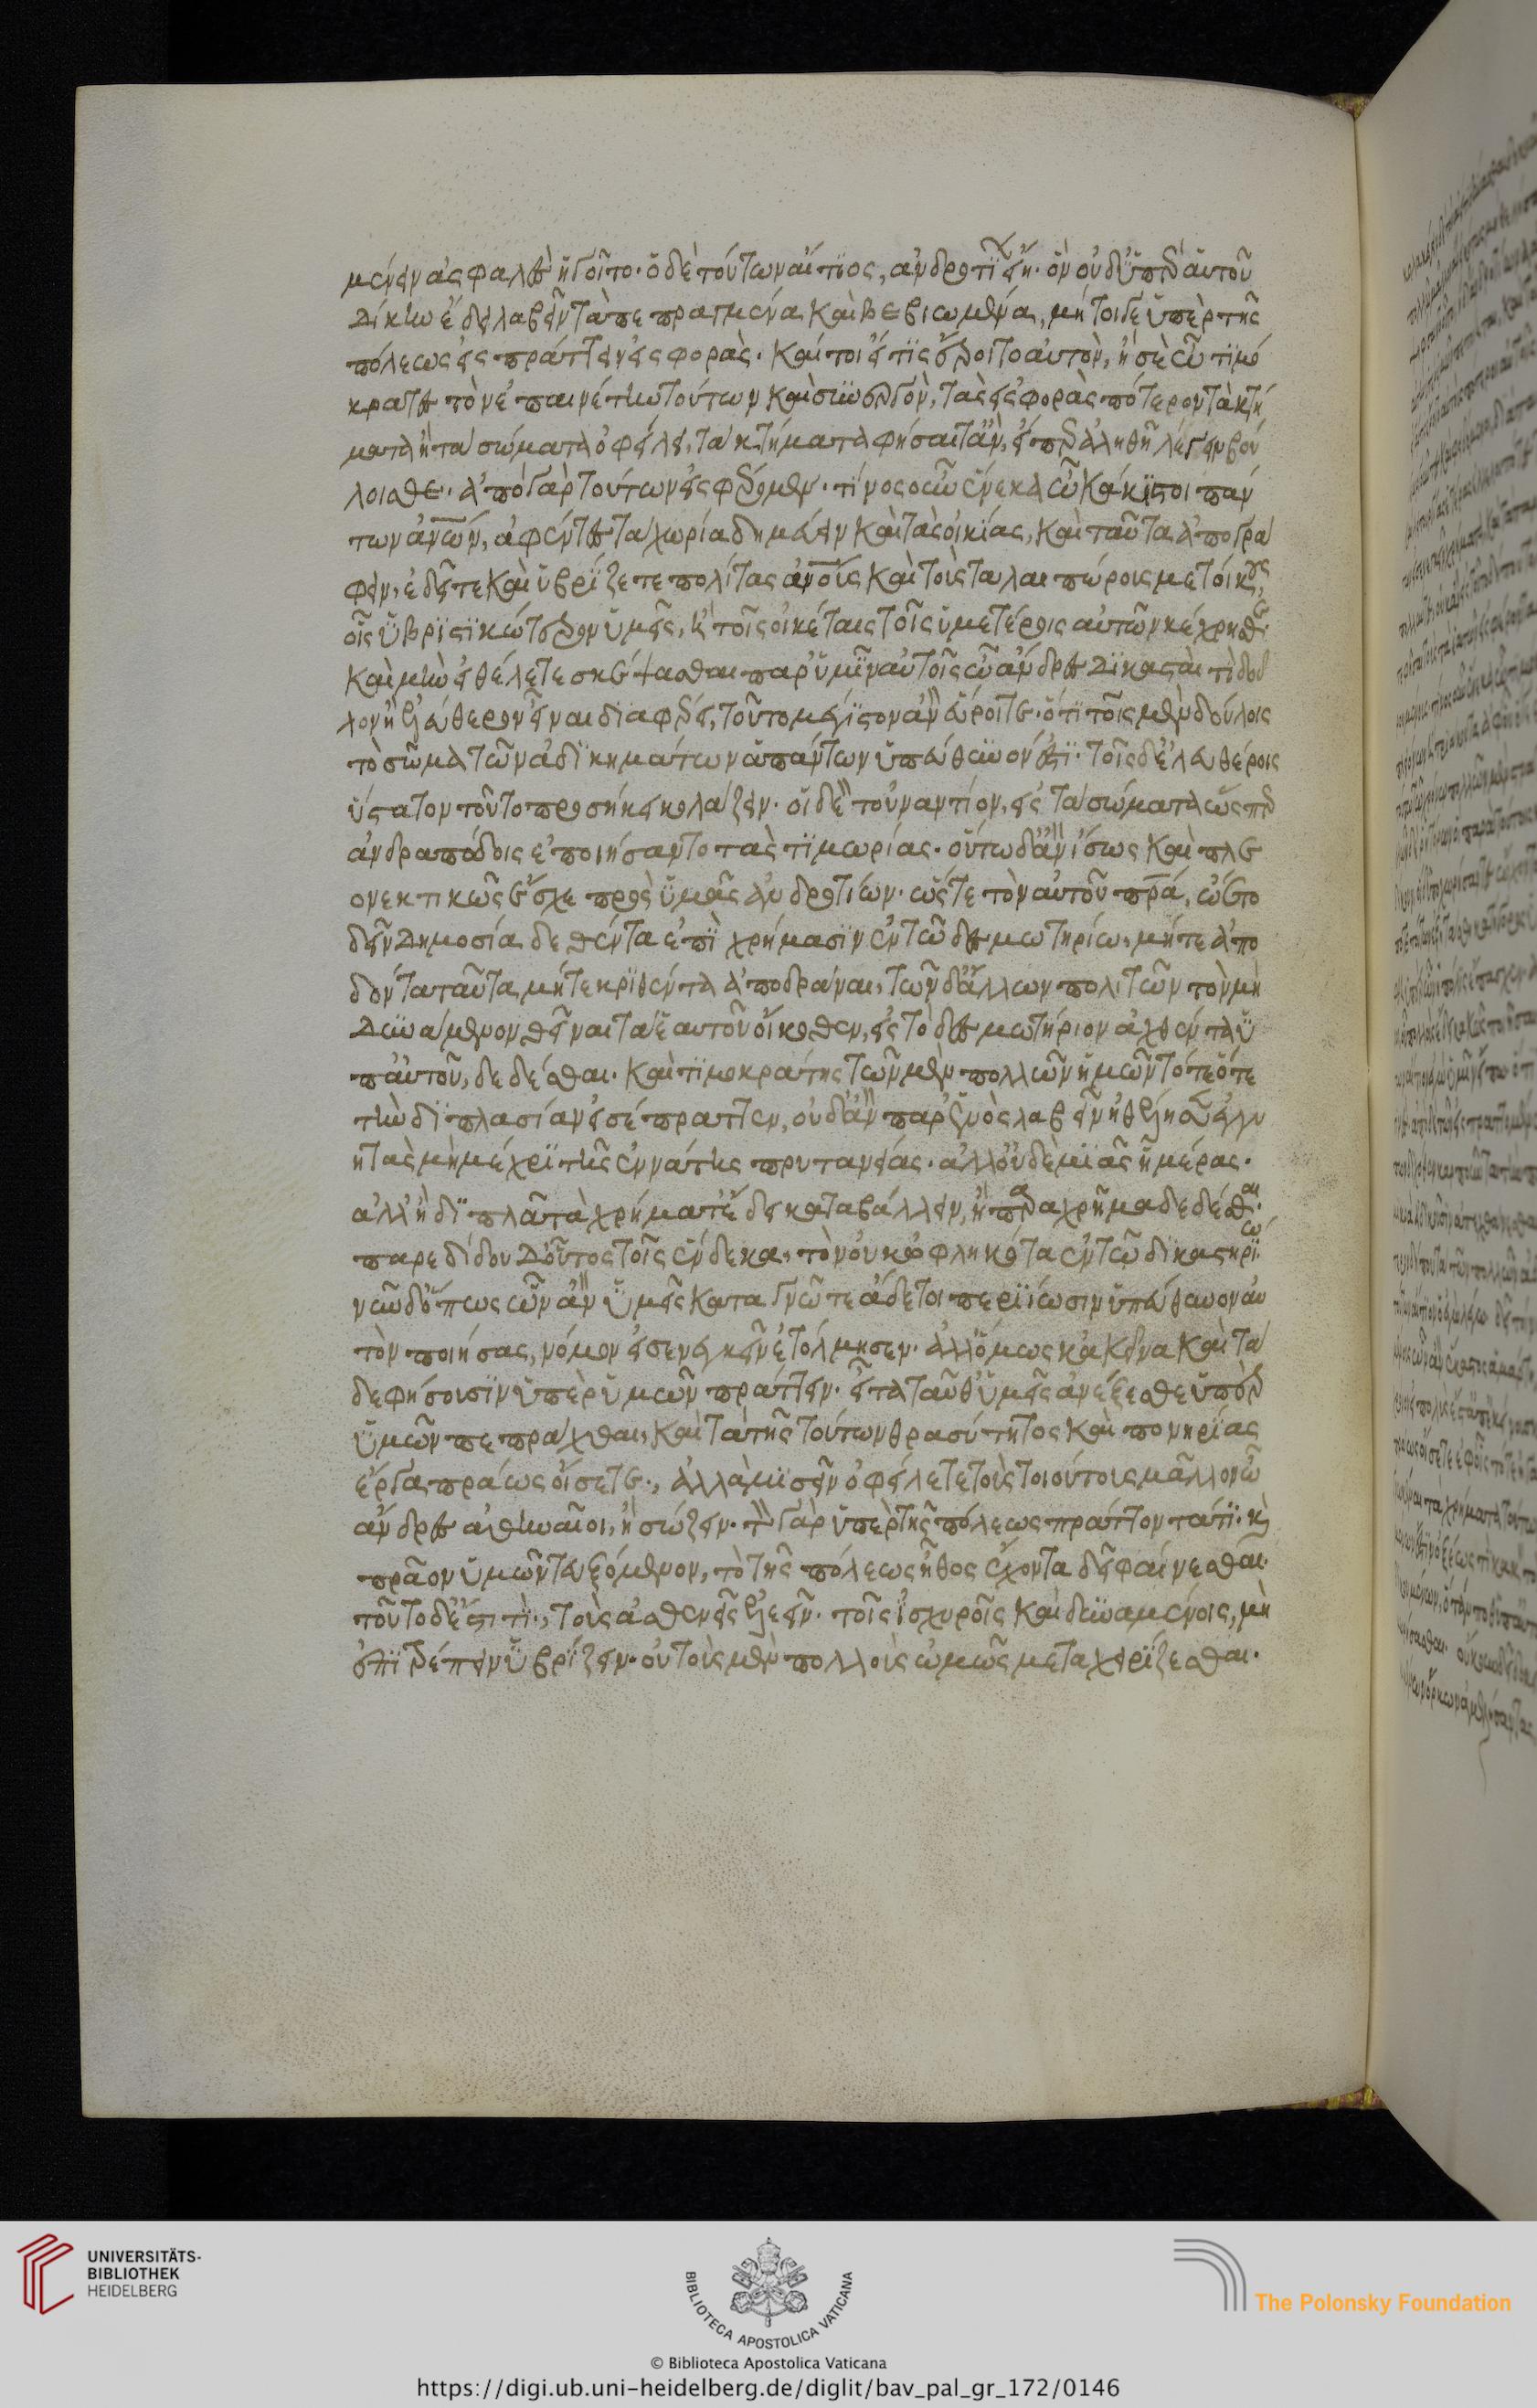 μένειν ἀσφαλὲς ἡγοῖτο· ὁ δὲ τούτων αἴτιος, ἀνδροτίων ἦν· ὃν οὐδ' ὑπὲρ αὑτοῦ
δίκην ἔδει λαβεῖν τὰ πεπραγμένα καὶ βεβιωμένα, μήτοιγε ὑπὲρ τῆς
πόλεως εἰσπράττειν εἰσφοράς· καίτοι εἴ τις ἔροιτο αὐτὸν, ἢ σὲ ὦ τιμό
κρατες τὸν ἐπαινέτην τούτων καὶ συνεργόν, τὰς εἰσφορὰς πότερον τὰ κτή
ματα ἢ τὰ σώματα ὀφείλει, τὰ κτήματα φήσαιτ' ἄν, εἴπερ ἀληθῆ λέγειν βού
λοισθε· ἀπὸ γὰρ τούτων εἰσφέρομεν· τίνος οὖν ἕνεκα ὦ κάκιστοι πάν
των ἀνων, ἀφέντες τὰ χωρία δημεύειν καὶ τὰς οἰκίας, καὶ ταῦτα ἀπογρά
φειν, ἐδεῖτε καὶ ὑβρίζετε πολίτας ἀνους καὶ τοὺς ταλαιπώρους μετοίκους,
οἷς ὑβριστικώτερον ὑμεῖς, ἢ τοῖς οἰκέταις τοῖς ὑμετέροις αὐτῶν κέχρησθε·
καὶ μὴν εἰ θέλετε σκέψασθαι παρ' ὑμῖν αὐτοῖς ὦ ἄνδρες δικασταὶ τί δοῦ
λον ἢ ἐλεύθερον εἶναι διαφέρει, τοῦτο μέγιστον ἂν εὕροιτε· ὅτι τοῖς μὲν δούλοις
τὸ σῶμα τῶν ἀδικημάτων ἁπάντων ὑπεύθυνόν ἐστι· τοῖς δ' ἐλευθέροις
ὕστατον τοῦτο προσήκει κολάζειν· οἱ δὲ τοὐναντίον, εἰς τὰ σώματα ὥσπερ
ἀνδραπόδοις ἐποιήσαντο τὰς τιμωρίας· οὕτω δ' ἀνίσως καὶ πλε
ονεκτικῶς ἔσχε πρὸς ὑμᾶς ἀνδροτίων· ὥστε τὸν αὑτοῦ πρα, ᾤετο
δεῖν δημοσίᾳ δεθέντα ἐπὶ χρήμασιν ἐν τῷ δεσμωτηρίῳ, μήτε ἀπο
δόντα ταῦτα μήτε κριθέντα ἀποδράναι, τῶν δ' ἄλλων πολιτῶν τὸν μὴ
δυνάμενον θεῖναι τὰ ἑαυτοῦ οἴκοθεν, εἰς τὸ δεσμωτήριον ἀχθέντα ὑ
π' αὐτοῦ, δεδέσθαι· καὶ τιμοκράτης τῶν μὲν πολλῶν ἡμῶν τότε ὅτε
τὴν διπλασίαν εἰσέπραττεν, οὐδ' ἂν παρ' ἑνὸς λαβεῖν ἠθέλησεν ἐγγυ
ητὰς μὴ μέχρι τῆς ἐννάτης πρυτανείας· ἀλλ' οὐδὲ μιᾶς ἡμέρας·
ἀλλ' ἢ διπλᾶ τὰ χρήματ' ἔδει καταβάλλειν, ἢ παραχρῆμα δεδέσθαι·
παρεδίδου δ' οὗτος τοῖς ἕνδεκα, τὸν οὐκ ὠφληκότα ἐν τῷ δικαστηρίῳ·
νῦν δ' ὅπως ὧν ἂν ὑμεῖς καταγνῶτε ἄδετοι περιίωσιν ὑπεύθυνον αὑ
τὸν ποιήσας, νόμον εἰσενεγκεῖν ἐτόλμησεν· ἀλλ' ὅμως κἀκεῖνα καὶ τά
δε φήσουσιν ὑπὲρ ὑμῶν πράττειν· εἶτα ταῦθ' ὑμεῖς ἀνέξεσθε ὑπὲρ
ὑμῶν πεπρᾶχθαι, καὶ τὰ τῆς τούτων θρασύτητος καὶ πονηρίας
ἔργα πράως οἴσετε, ἀλλὰ μισεῖν ὀφείλετε τοὺς τοιούτους μᾶλλον ὦ
ἄνδρες ἀθηναῖοι, ἢ σώζειν· τὸν γὰρ ὑπὲρ τῆς πόλεως πράττοντά τι· καὶ
πρᾶον ὑμῶν τευξόμενον, τὸ τῆς πόλεως ἦθος ἔχοντα δεῖ φαίνεσθαι·
τοῦτο δέ ἐστι τί, τοὺς ἀσθενεῖς ἐλεεῖν· τοῖς ἰσχυροῖς καὶ δυναμένοις, μὴ
ἐπιτρέπειν ὑβρίζειν· οὐ τοὺς μὲν πολλοὺς ὠμῶς μεταχειρίζεσθαι·
UNIVERSITÄTS-
BIBLIOTHEK
HEIDELBERG
BIBLIOTECA APOSTOLICA VATICANA
The Polonsky Foundation
© Biblioteca Apostolica Vaticana
https://digi.ub.uni-heidelberg.de/diglit/bav_pal_gr_172/0146